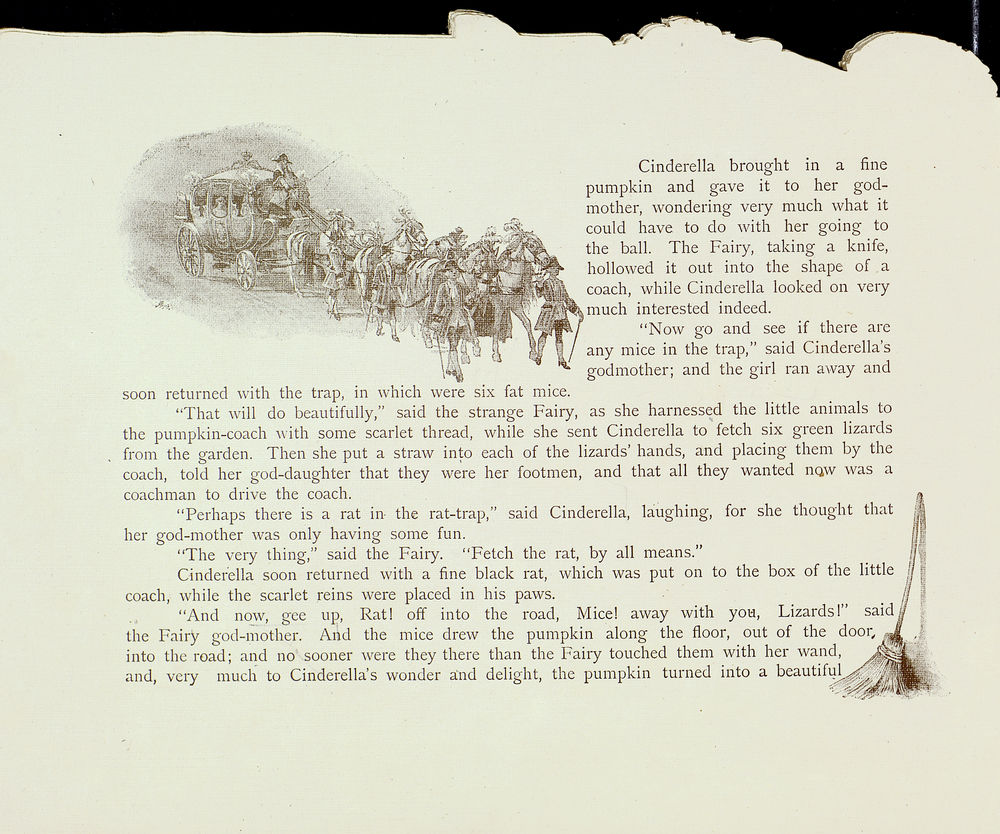 Cinderella brought in a fine
pumpkin and gave it to her god-
mother, wondering very much what it
could have to do with her going to
the ball. The Fairy, taking a knife,
hollowed it out into the shape of a
coach, while Cinderella looked on very
much interested indeed.
“Now go and see if there are
any mice in the trap,” said Cinderella’s
godmother; and the girl ran away and
soon returned with the trap, in which were six fat mice.
“That will do beautifully,” said the strange Fairy, as she harnessed the little animals to
the pumpkin-coach with some scarlet thread, while she sent Cinderella to fetch six green lizards
from the garden. Then she put a straw into each of the lizards’ hands, and placing them by the
coach, told her god-daughter that they were her footmen, and that all they wanted now was a
coachman to drive the coach.
“Perhaps there is a rat in the rat-trap,” said Cinderella, laughing, for she thought that
her god-mother was only having some fun.
“The very thing,” said the Fairy. “Fetch the rat, by all means.”
Cinderella soon returned with a fine black rat, which was put on to the box of the little
coach, while the scarlet reins were placed in his paws.
“And now, gee up, Rat! off into the road, Mice! away with you, Lizards!” said
the Fairy god-mother. And the mice drew the pumpkin along the floor, out of the door,
into the road; and no sooner were they there than the Fairy touched them with her wand,
and, very much to Cinderella’s wonder and delight, the pumpkin turned into a beautiful